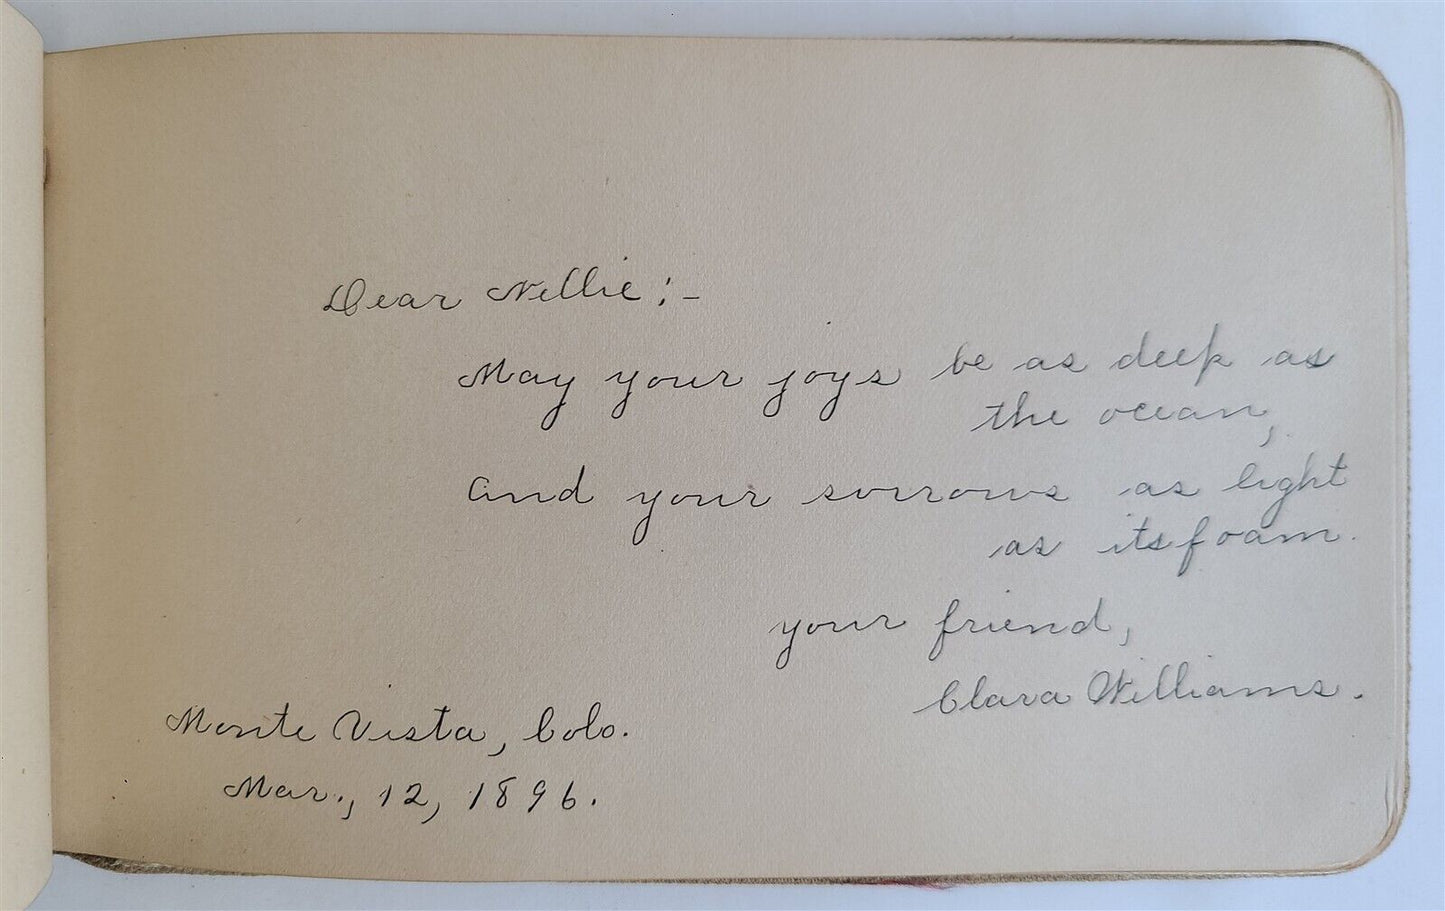 Dear Nellie:-
May your joys be as deep as
the ocean,
And your sorrows as light
as its foam.
your friend,
Clara Williams.
Monte Vista, Colo.
Mar., 12, 1896.